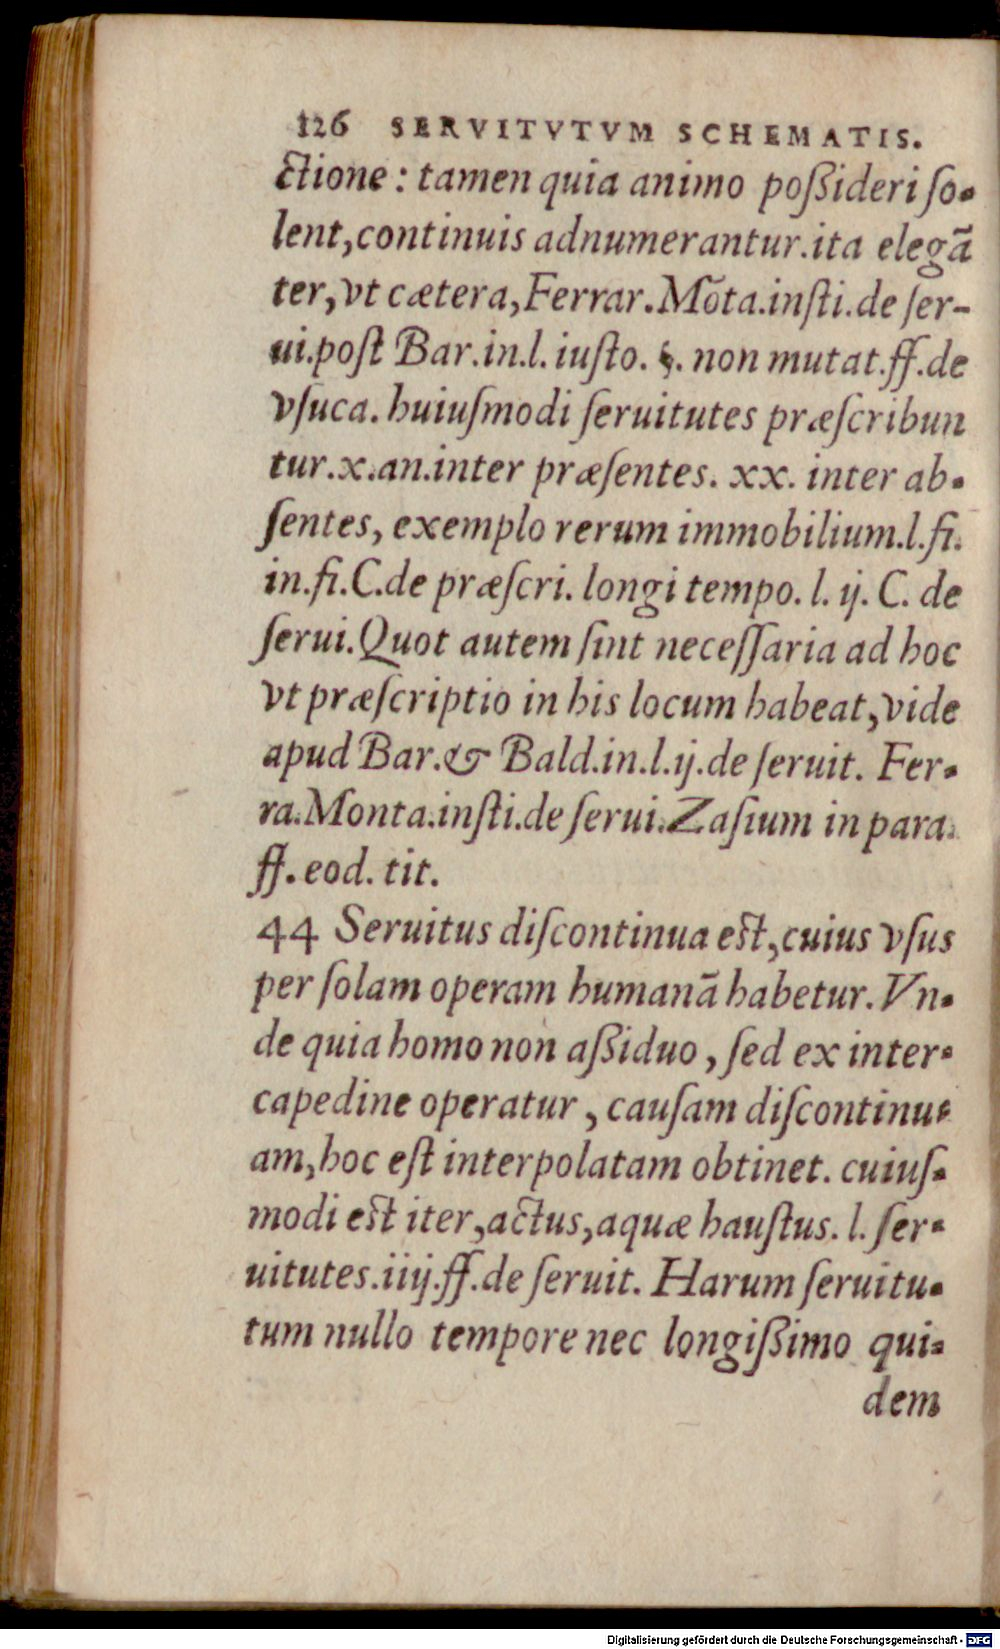 126 SERVITVTVM SCHEMATIS.
ctione: tamen quia animo poßideri ſo-
lent, continuis adnumerantur. ita elegã
ter, vt cætera, Ferrar. Mõta. inſti. de ſer-
ui. poſt Bar. in. l. iuſto. §. non mutat. ff. de
vſuca. huiuſmodi ſeruitutes præſcribun
tur. x. an. inter præſentes. xx. inter ab-
ſentes, exemplo rerum immobilium. l. fi.
in. fi. C. de præſcri. longi tempo. l. ij. C. de
ſerui. Quot autem ſint neceſſaria ad hoc
vt præſcriptio in his locum habeat, vide
apud Bar. & Bald. in. l. ij. de ſeruit. Fer-
ra. Monta. inſti. de ſerui. Zaſium in para.
ff. eod. tit.
44 Seruitus diſcontinua eſt, cuius vſus
per ſolam operam humanã habetur. Vn-
de quia homo non aßiduo, ſed ex inter-
capedine operatur, cauſam diſcontinu-
am, hoc eſt interpolatam obtinet. cuiuſ-
modi eſt iter, actus, aquæ hauſtus. l. ſer-
uitutes. iiij. ff. de ſeruit. Harum ſeruitu-
tum nullo tempore nec longißimo qui-
dem
Digitalisierung gefördert durch die Deutsche Forschungsgemeinschaft - DFG